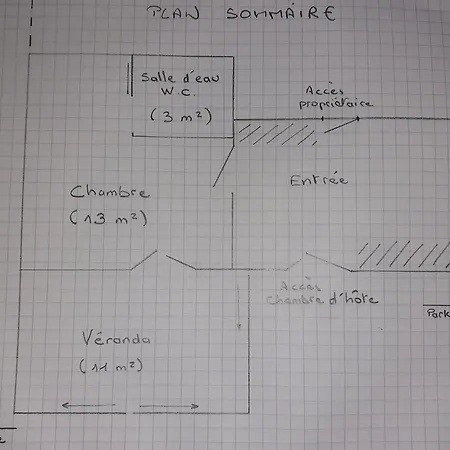 PLAN SOMMAIRE
Salle d'eau
W.C.
(3 m²)
Accès
propriétaire
Entrée
Chambre
(13 m²)
Accès
chambre d'hôte
Park
Véranda
(11 m²)